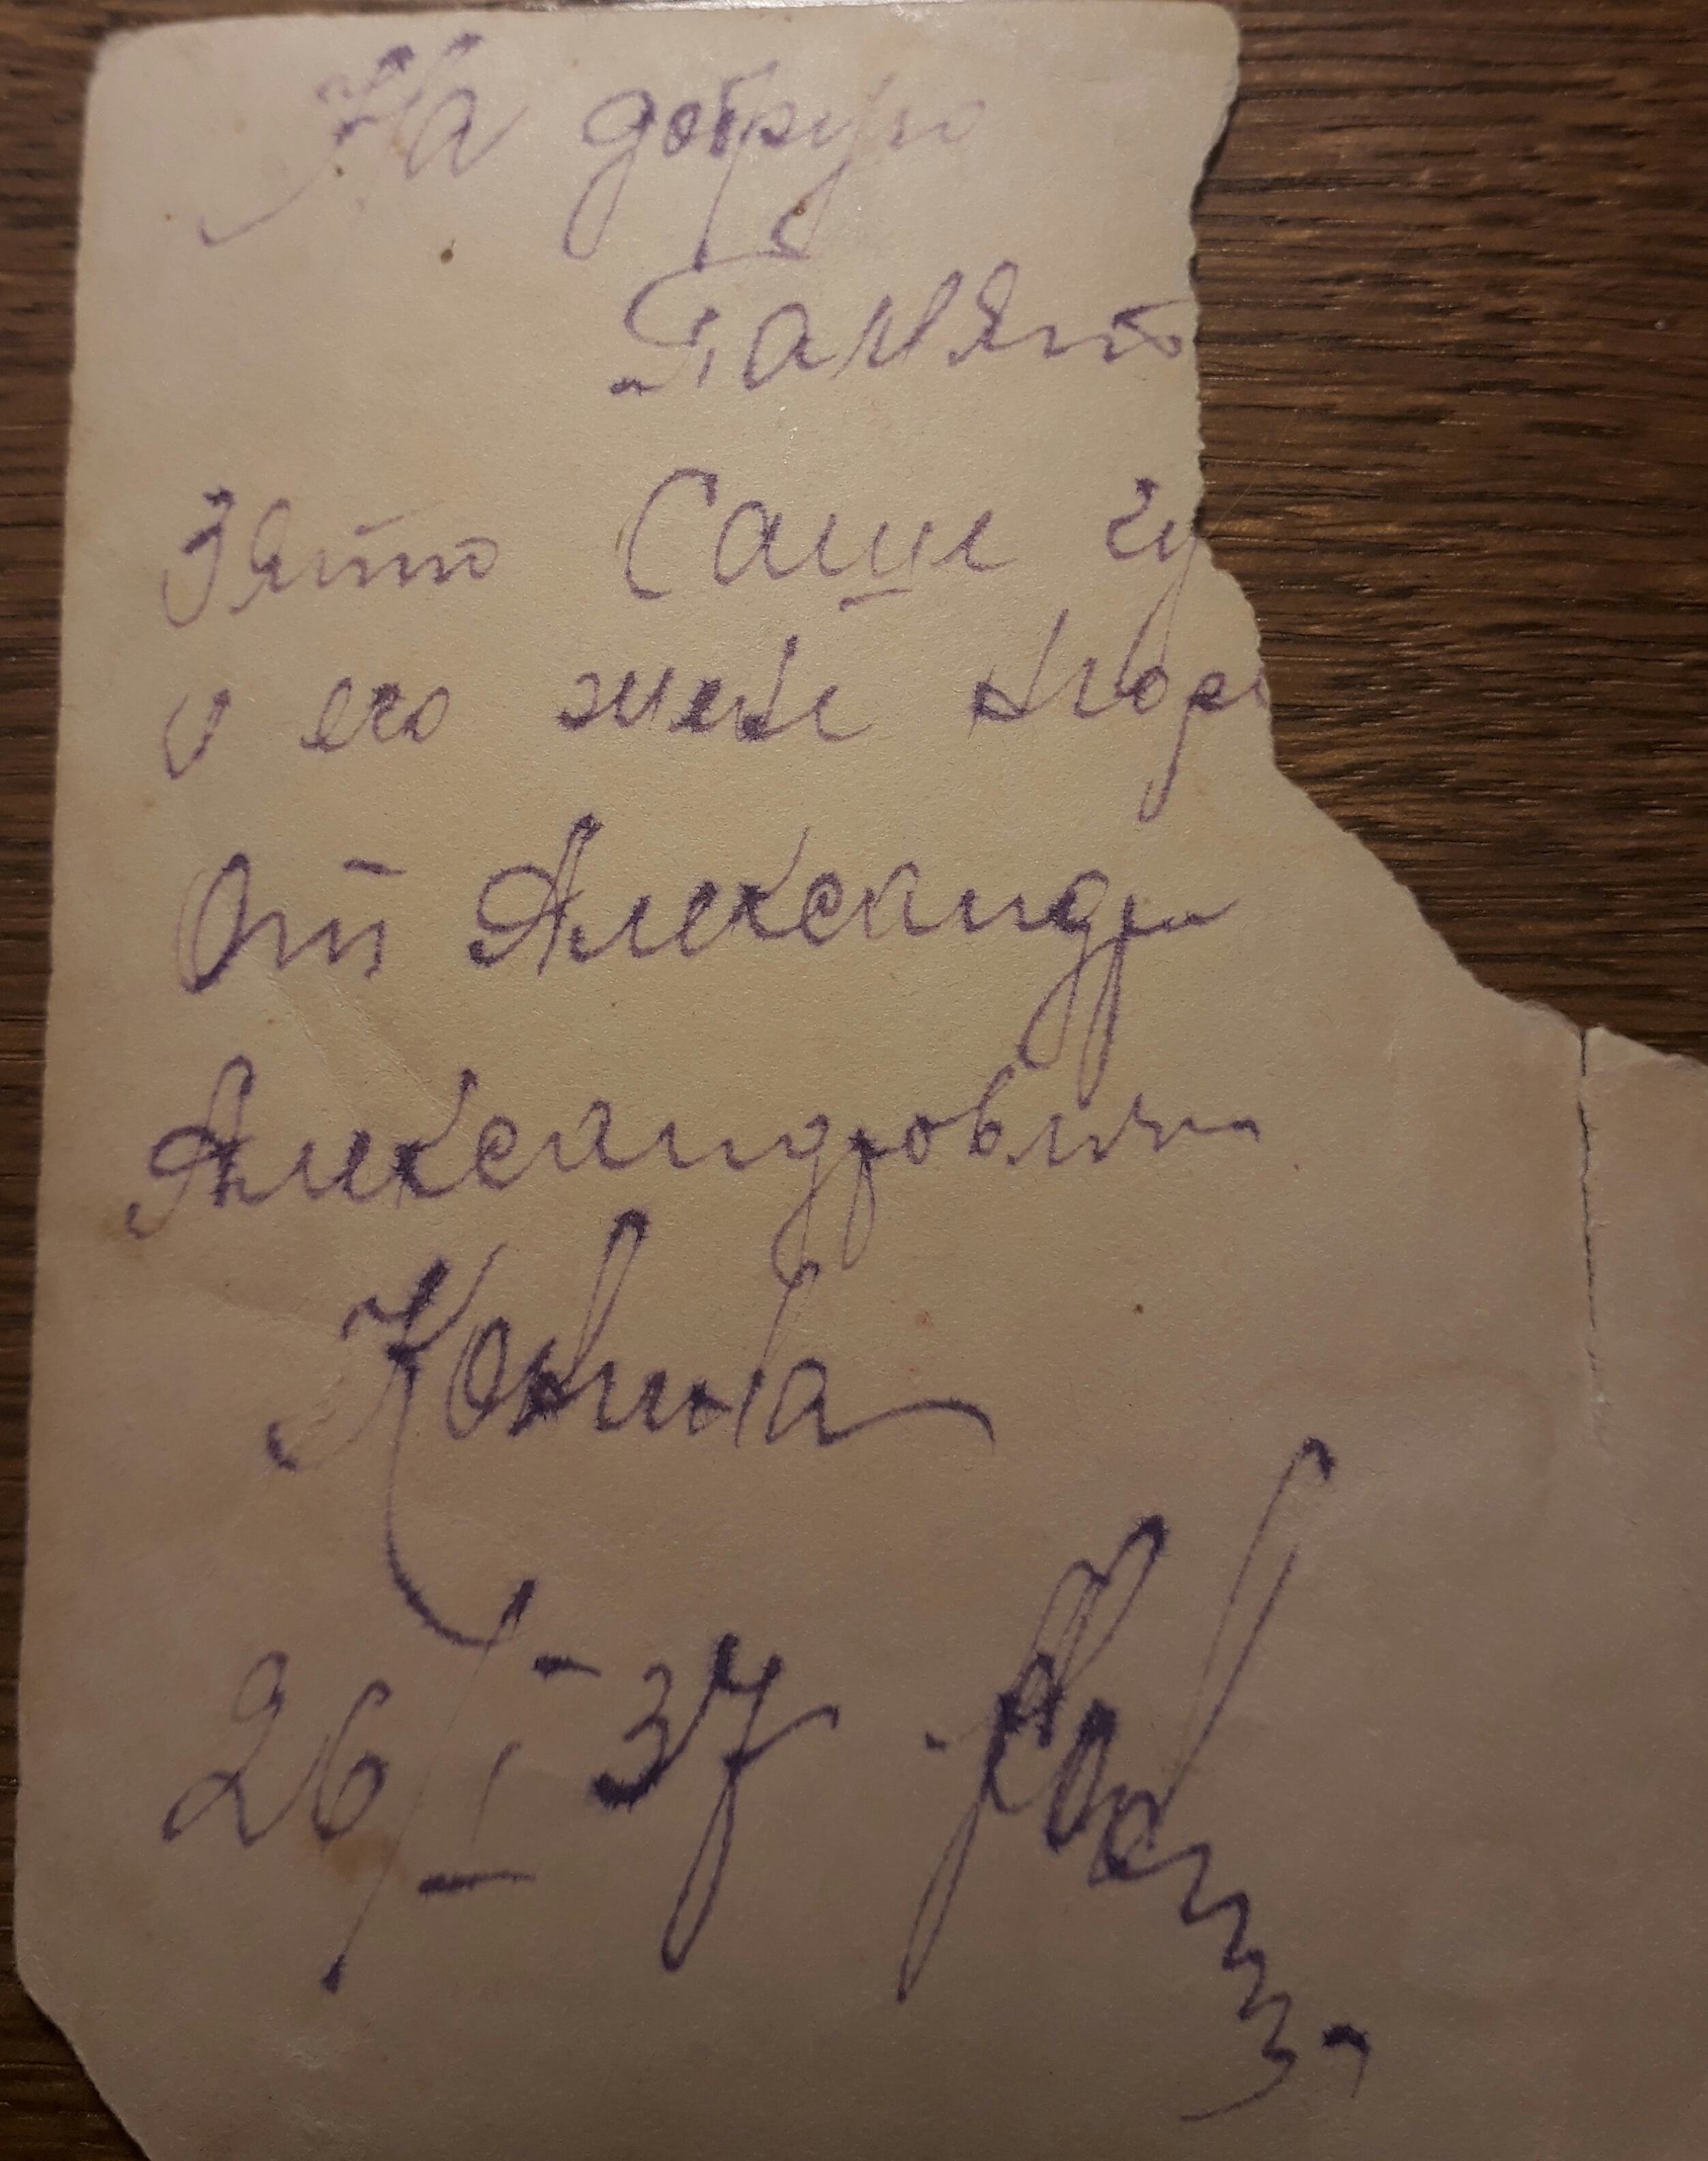 На добрую
Память
Зятю Саше
и его жене
От Александра
Александровича
26/I-37